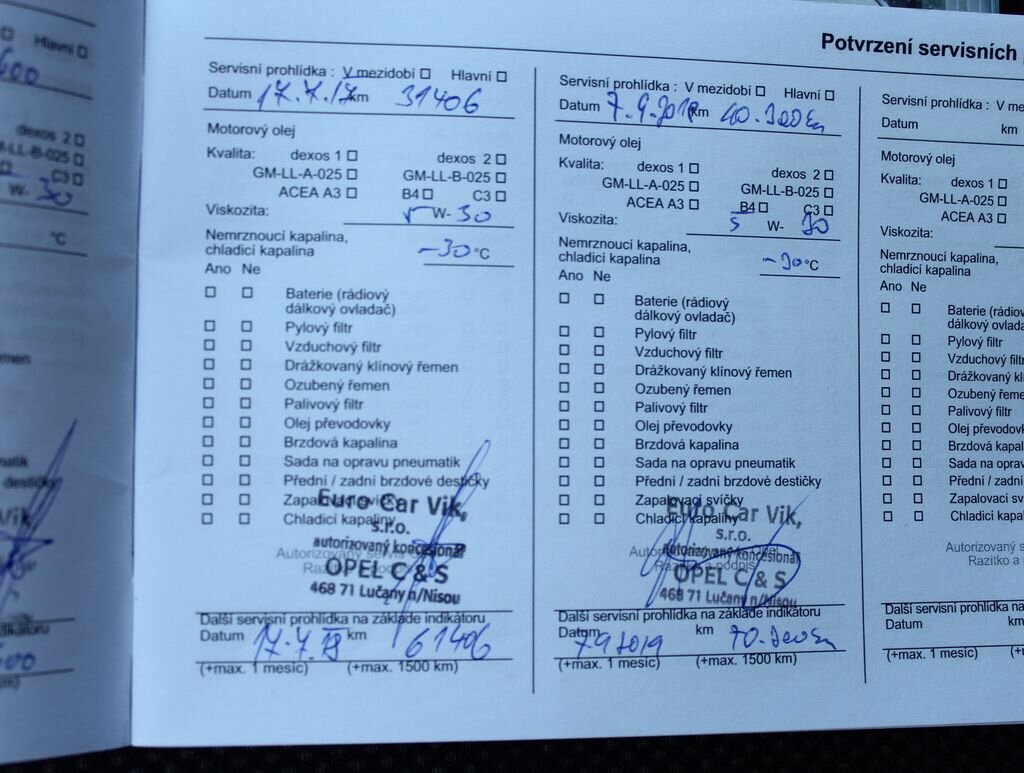 Potvrzení servisních
Hlavní
600
dexos 2
LL-B-025
C3
W- 30
°C
Servisní prohlídka : V mezidobí Hlavní
Datum 17.7.17 km 31406
Motorový olej
Kvalita: dexos 1 dexos 2
GM-LL-A-025 GM-LL-B-025
ACEA A3 B4 C3
Viskozita: W- 30
Nemrznoucí kapalina,
chladicí kapalina -30 °C
Ano Ne
Baterie (rádiový
dálkový ovladač)
Pylový filtr
Vzduchový filtr
Drážkovaný klínový řemen
Ozubený řemen
Palivový filtr
Olej převodovky
Brzdová kapalina
Sada na opravu pneumatik
Přední / zadní brzdové destičky
Zapalovací svíčky
Chladicí kapaliny
Euro Car Vik,
s.r.o.
autorizovaný koncesionář
OPEL C & S
468 71 Lučany n/Nisou
Další servisní prohlídka na základě indikátoru
Datum 17.7.18 km 61406
(+max. 1 mesíc) (+max. 1500 km)
Servisní prohlídka : V mezidobí Hlavní
Datum 7.9.2018 km
Motorový olej
Kvalita: dexos 1 dexos 2
GM-LL-A-025 GM-LL-B-025
ACEA A3 B4 C3
Viskozita: 5 W- 30
Nemrznoucí kapalina,
chladicí kapalina -30 °C
Ano Ne
Baterie (rádiový
dálkový ovladač)
Pylový filtr
Vzduchový filtr
Drážkovaný klínový řemen
Ozubený řemen
Palivový filtr
Olej převodovky
Brzdová kapalina
Sada na opravu pneumatik
Přední / zadní brzdové destičky
Zapalovací svíčky
Chladicí kapaliny
Euro Car Vik,
s.r.o.
autorizovaný koncesionář
Razítko a podpis
OPEL C & S
468 71 Lučany n/Nisou
Další servisní prohlídka na základě indikátoru
Datum 7.9.2019 km
(+max. 1 mesíc) (+max. 1500 km)
Servisní prohlídka : V me
Datum km
Motorový olej
Kvalita: dexos 1
GM-LL-A-025
ACEA A3
Viskozita:
Nemrznoucí kapalina,
chladicí kapalina
Ano Ne
Baterie (rádiov
dálkový ovlada
Pylový filtr
Vzduchový filtr
Drážkovaný kl
Ozubený řeme
Palivový filtr
Olej převodovk
Brzdová kapal
Sada na oprav
Přední / zadní
Zapalovací sv
Chladicí kapa
Autorizovaný s
Razítko a
Další servisní prohlídka na
Datum km
(+max. 1 mesíc)